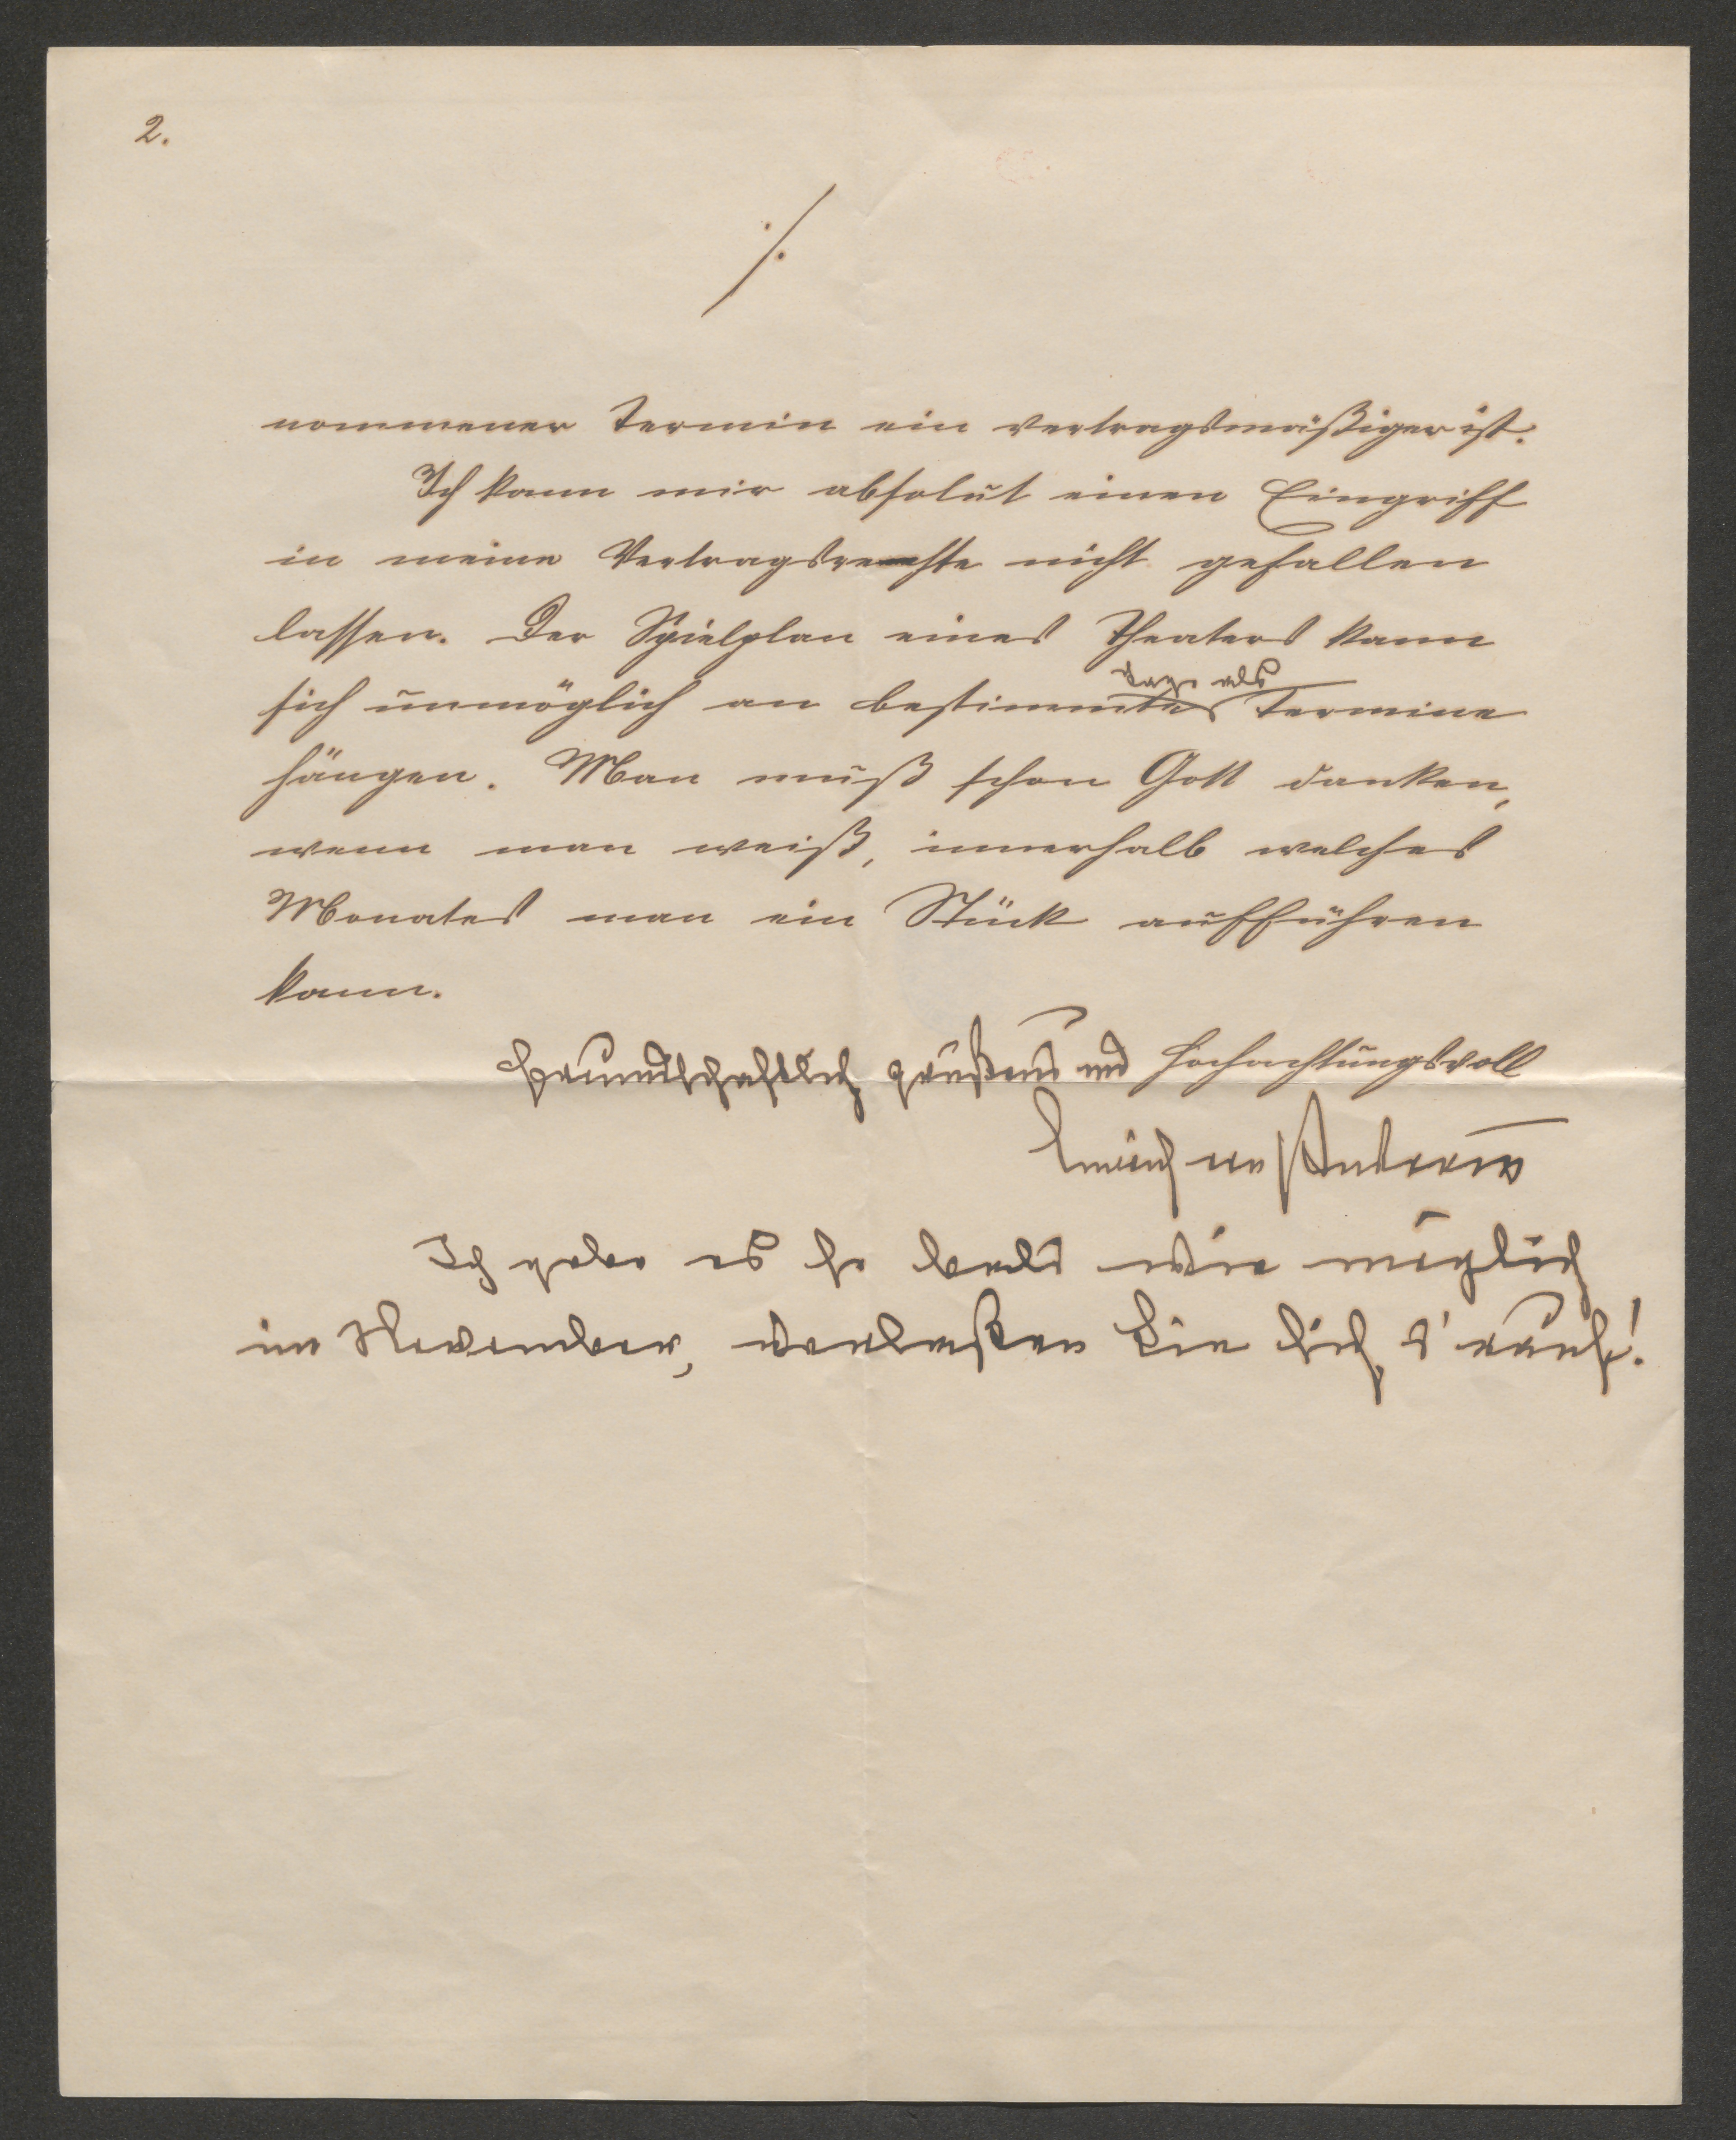 2.
./.
nommener Termin ein vertragsmäßiger ist.
Ich kann mir absolut einen Eingriff
in meine Vertragsrechte nicht gefallen
lassen. Der Spielplan eines Theaters kann
Tage als
sich unmöglich an bestimmte Termine
hängen. Man muß schon Gott danken,
wenn man weiß, innerhalb welches
Monates man ein Stück aufführen
kann.
freundschaftlich grüßend und hochachtungsvoll
Emerich von Bukovics
Ich gebe es so bald wie möglich
im November, verlaßen Sie sich d'rauf!